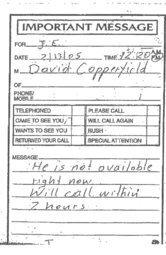 IMPORTANT MESSAGE
FOR J.E.
DATE 2/13/05 TIME 12:20 A.M. P.M.
M David Copperfield
OF
PHONE/
MOBILE
TELEPHONED PLEASE CALL
CAME TO SEE YOU WILL CALL AGAIN
WANTS TO SEE YOU RUSH
RETURNED YOUR CALL SPECIAL ATTENTION
MESSAGE
He is not available
right now
Will call within
2 hours